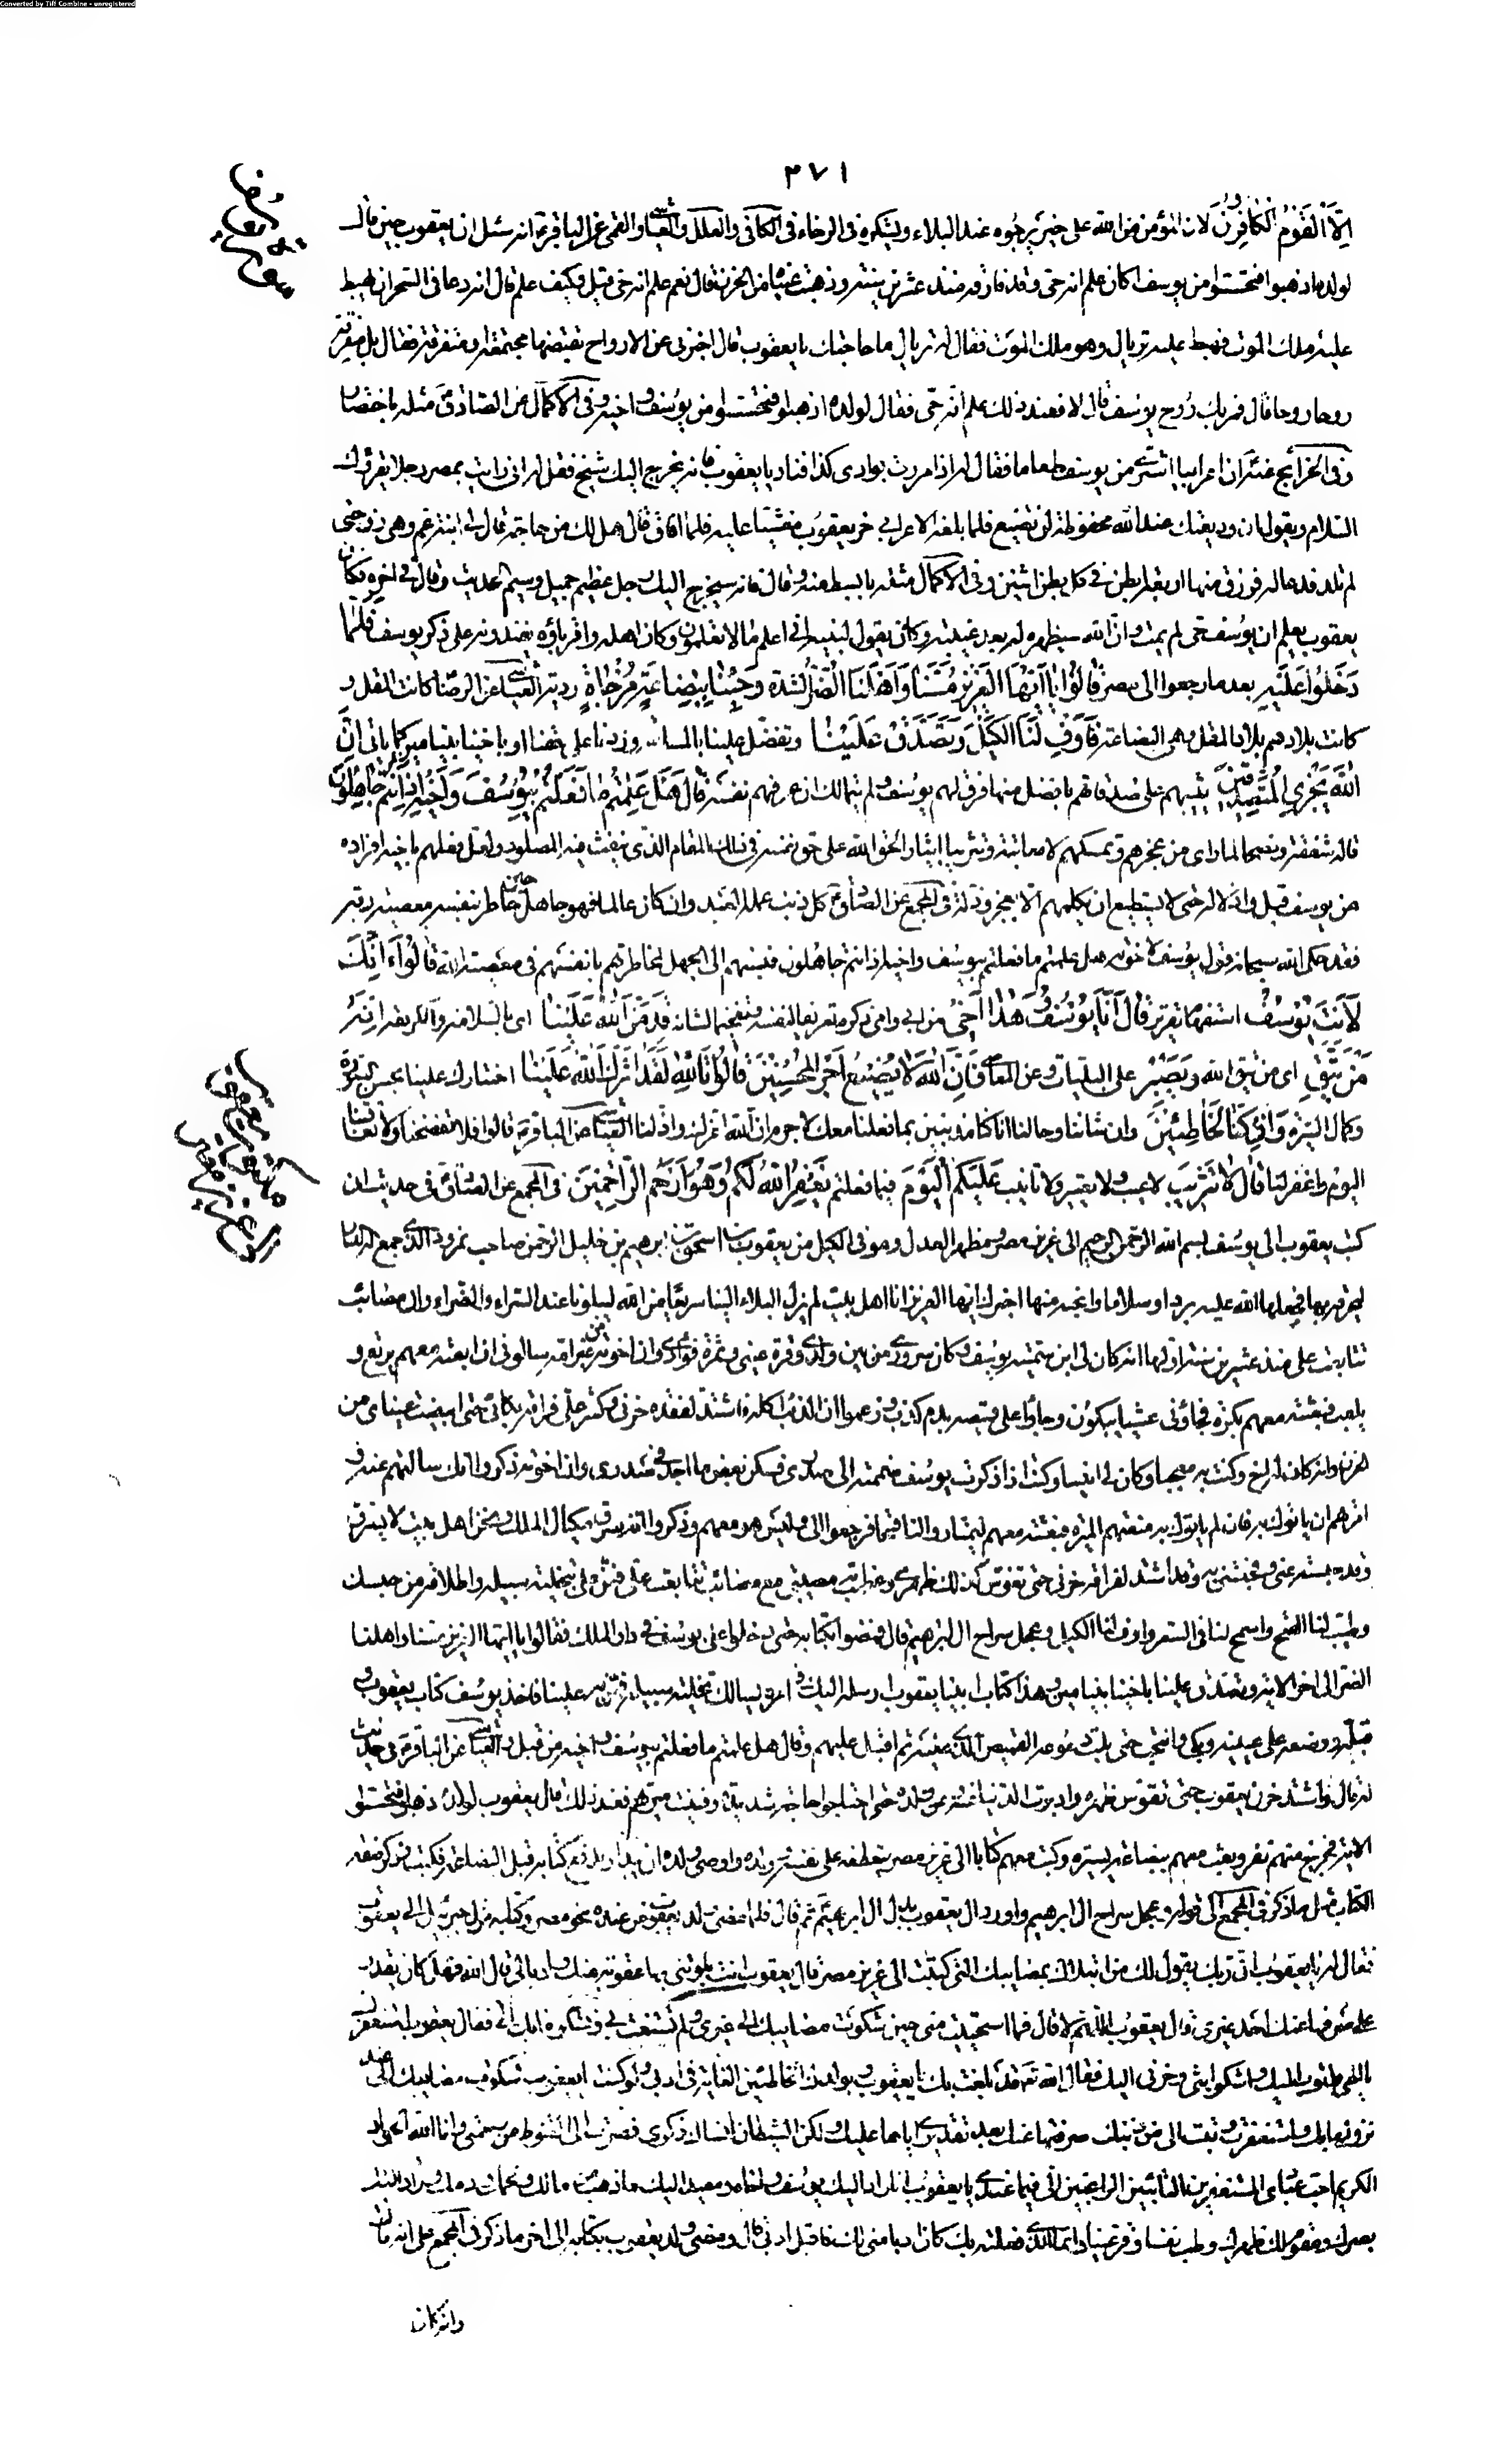 Converted by Tiff Combine - unregistered
٢٧١
اِلَّا الْقَوْمُ الْكَافِرُونَ لان المؤمن من الله على خير يرجوه عند البلاء ويشكره فى الرخاء فى الكافى والعلل والعياشى والقمى عن الباقر انه سئل ان يعقوب حين قال
لولده اذهبوا فتحسسوا من يوسف اكان علم انه حى وقد فارقه منذ عشرين سنة وذهبت عيناه من الحزن قال نعم علم انه حى قيل وكيف علم قال انه دعا فى السحر ان يهبط
عليه ملك الموت فهبط عليه تربال وهو ملك الموت فقال له تربال ما حاجتك يا يعقوب قال اخبرنى عن الارواح تقبضها مجتمعة او متفرقة فقال بل متفرقة
روحا روحا قال فمر بك روح يوسف قال لا فعند ذلك علم انه حى فقال لولده اذهبوا فتحسسوا من يوسف واخيه وفى الاكمال عن الصادق مثله باختصار
وفى الخرايج عنه ان اعرابيا اشترى من يوسف طعاما فقال له اذا مررت بوادى كذا فناد يا يعقوب فانه يخرج اليك شيخ فقل له انى رايت بمصر رجلا يقرؤك
السلام ويقول ان وديعتك عند الله محفوظة لن تضيع فلما بلغه الاعرابى خر يعقوب مغشيا عليه فلما افاق قال هل لك من حاجة قال لى ابنة عم وهى زوجتى
لم تلد فدعا له فرزق منها اربعة ابطن فى كل بطن اثنين وفى الاكمال مثله بابسط منه وقال فانه سيخرج اليك رجل عظيم جميل وسيم الحديث وقال فى اخره وكان
يعقوب يعلم ان يوسف حى لم يمت وان الله سيظهره له بعد غيبته وكان يقول لبنيه انى اعلم ما لا تعلمون وكان اهله واقرباؤه يفندونه على ذكر يوسف فَلَمَّا
دَخَلُوا عَلَيْهِ بعد ما رجعوا الى مصر قَالُوا يَا اَيُّهَا الْعَزِيزُ مَسَّنَا وَاَهْلَنَا الضُّرُّ الشدة وَجِئْنَا بِبِضَاعَةٍ مُزْجَاةٍ ردية العياشى عن الرضا كانت المقل و
كانت بلادهم بلاد المقل وهى البضاعة فَاَوْفِ لَنَا الْكَيْلَ وَتَصَدَّقْ عَلَيْنَا وتفضل علينا بالمسامحة وزدنا على حقنا او باخينا بنيامين كما ياتى اِنَّ
اللهَ يَجْزِى الْمُتَصَدِّقِينَ يثيبهم على صدقاتهم بافضل منها فرق لهم يوسف ولم يتمالك ان عرفهم نفسه قَالَ هَلْ عَلِمْتُمْ مَا فَعَلْتُمْ بِيُوسُفَ وَاَخِيهِ اِذْ اَنْتُمْ جَاهِلُونَ
قاله شفقة ونصحا لما راى من عجزهم وتمسكنهم لا معاتبة وتثريبا ايثارا لحق الله على حق نفسه فى ذلك المقام الذى ينفث فيه المصدور ولعل فعلهم باخيه افراده
من يوسف قيل واذلاله حتى لا يستطيع ان يكلمهم الا بعجز وذلة فى المجمع عن الصادق كل ذنب عمله العبد وان كان عالما فهو جاهل حين خاطر بنفسه معصية ربه
فقد حكى الله سبحانه قول يوسف لاخوته هل علمتم ما فعلتم بيوسف واخيه اذ انتم جاهلون فنسبهم الى الجهل لمخاطرتهم بانفسهم فى معصية الله قَالُوا ءَاِنَّكَ
لَاَنْتَ يُوسُفُ استفهام تقرير قَالَ اَنَا يُوسُفُ وَهٰذَا اَخِى من ابى وامى ذكره تعريفا لنفسه وتفخيما لشانه قَدْ مَنَّ اللهُ عَلَيْنَا اى بالسلامة والكرامة اِنَّهُ
مَنْ يَتَّقِ اى من يتق الله وَيَصْبِرْ على البليات وعن المعاصى فَاِنَّ اللهَ لَا يُضِيعُ اَجْرَ الْمُحْسِنِينَ قَالُوا تَاللهِ لَقَدْ اٰثَرَكَ اللهُ عَلَيْنَا اختارك علينا بحسن الصورة
وكمال السيرة وَاِنْ كُنَّا لَخَاطِئِينَ وان شاننا وحالنا انا كنا مذنبين بما فعلنا معك لا جرم ان الله اعزك واذلنا العياشى عن الباقر قالوا فلا تفضحنا ولا تعاقبنا
اليوم واغفر لنا قَالَ لَا تَثْرِيبَ لا عيب ولا تعيير ولا تانيب عَلَيْكُمُ الْيَوْمَ فيما فعلتم يَغْفِرُ اللهُ لَكُمْ وَهُوَ اَرْحَمُ الرَّاحِمِينَ فى المجمع عن الصادق فى حديث ان
كتب يعقوب الى يوسف بسم الله الرحمن الرحيم الى عزيز مصر ومظهر العدل وموفى الكيل من يعقوب بن اسحق بن ابرهيم بن خليل الرحمن صاحب نمرود الذى جمع له النار
ليحرقه بها فجعلها الله عليه بردا وسلاما وانجاه منها اخبرك ايها العزيز انا اهل بيت لم يزل البلاء الينا سريعا من الله ليبلونا عند السراء والضراء وان مصائب
تتابعت على منذ عشرين سنة اولها انه كان لى ابن سميته يوسف وكان سرورى من بين ولدى وقرة عينى وثمرة فؤادى وان اخوته من غير امه سالونى ان ابعثه معهم يرتع و
يلعب فبعثته معهم بكرة فجاؤنى عشيا يبكون وجاؤا على قميصه بدم كذب وزعموا ان الذئب اكله فاشتد لفقده حزنى وكثر على فراقه بكائى حتى ابيضت عيناى من
الحزن وانه كان له اخ وكنت به معجبا وكان لى انيسا وكنت اذا ذكرت يوسف ضممته الى صدرى فسكن بعض ما اجد فى صدرى وان اخوته ذكروا انك سالتهم عنه و
امرتهم ان ياتوك به فان لم ياتوك به منعتهم الميرة فبعثته معهم ليمتاروا لنا قمحا فرجعوا الى وليس هو معهم وذكروا انه سرق مكيال الملك ونحن اهل بيت لا نسرق
وقد حبسته عنى وفجعتنى به وقد اشتد لفراقه حزنى حتى تقوس لذلك ظهرى وعظمت به مصيبتى مع مصائب تتابعت على فمن على بتخلية سبيله واطلاقه من حبسك
وطيب لنا القمح واسمح لنا فى السعر واوف لنا الكيل وعجل سراح ال ابرهيم قال فمضوا بكتابه حتى دخلوا على يوسف فى دار الملك فقالوا يا ايها العزيز مسنا واهلنا
الضر الى اخر الاية وتصدق علينا باخينا بنيامين وهذا كتاب ابينا يعقوب ارسله اليك فى امره يسالك تخلية سبيله فمن به علينا فاخذ يوسف كتاب يعقوب و
قبله ووضعه على عينيه وبكى وانتحب حتى بلت دموعه القميص الذى عليه ثم اقبل عليهم وقال هل علمتم ما فعلتم بيوسف واخيه من قبل والعياشى عن الباقر فى حديث
له قال واشتد حزن يعقوب حتى تقوس ظهره وادبرت الدنيا عن يعقوب وولده حتى احتاجوا حاجة شديدة وفنيت ميرتهم فعند ذلك قال يعقوب لولده اذهبوا فتحسسوا
الاية فخرج منهم نفر وبعث معهم ببضاعة يسيرة وكتب معهم كتابا الى عزيز مصر يتعطفه على نفسه وولده واوصى ولده ان يبداوا بدفع كتابه قبل البضاعة فكتب وذكر صفة
الكتاب مثل ما ذكر فى المجمع الى قوله وعجل سراح ال ابرهيم واورد ال يعقوب بدل ال ابرهيم ثم قال فلما مضى ولد يعقوب من عنده نحو مصر وكتابه نزل جبرئيل الى يعقوب
فقال له يا يعقوب ان ربك يقول لك من ابتلاك بمصايبك التى كتبت الى عزيز مصر قال يعقوب انت بلوتنى بها عقوبة منك وادبا لى قال الله فهل كان يقدر
على صرفها عنك احد غيرى قال يعقوب اللهم لا قال فما استحييت منى حين شكوت مصايبك الى غيرى ولم تستغث بى وتشكو ما بك الى فقال يعقوب استغفرك
يا الهى واتوب اليك واشكو بثى وحزنى اليك فقال الله تعالى قد بلغت بك يا يعقوب وبولدك الخاطئين الغاية فى ادبى ولو كنت يا يعقوب شكوت مصايبك الى عند
نزولها بك واستغفرت وتبت الى من ذنبك لصرفتها عنك بعد تقديرى اياها عليك ولكن الشيطان انساك ذكرى فصرت الى القنوط من رحمتى وانا الله الجواد
الكريم احب عبادى المستغفرين التائبين الراغبين الى فيما عندى يا يعقوب انا راد اليك يوسف واخاه ومعيد اليك ما ذهب من مالك ولحمك ودمك وراد اليك
بصرك ومقوم لك ظهرك وطب نفسا وقر عينا وانما الذى فعلته بك كان ادبا منى لك فاقبل ادبى قال ومضى ولد يعقوب بكتابه الى اخر ما ذكر فى المجمع على انه قال
وانه كان